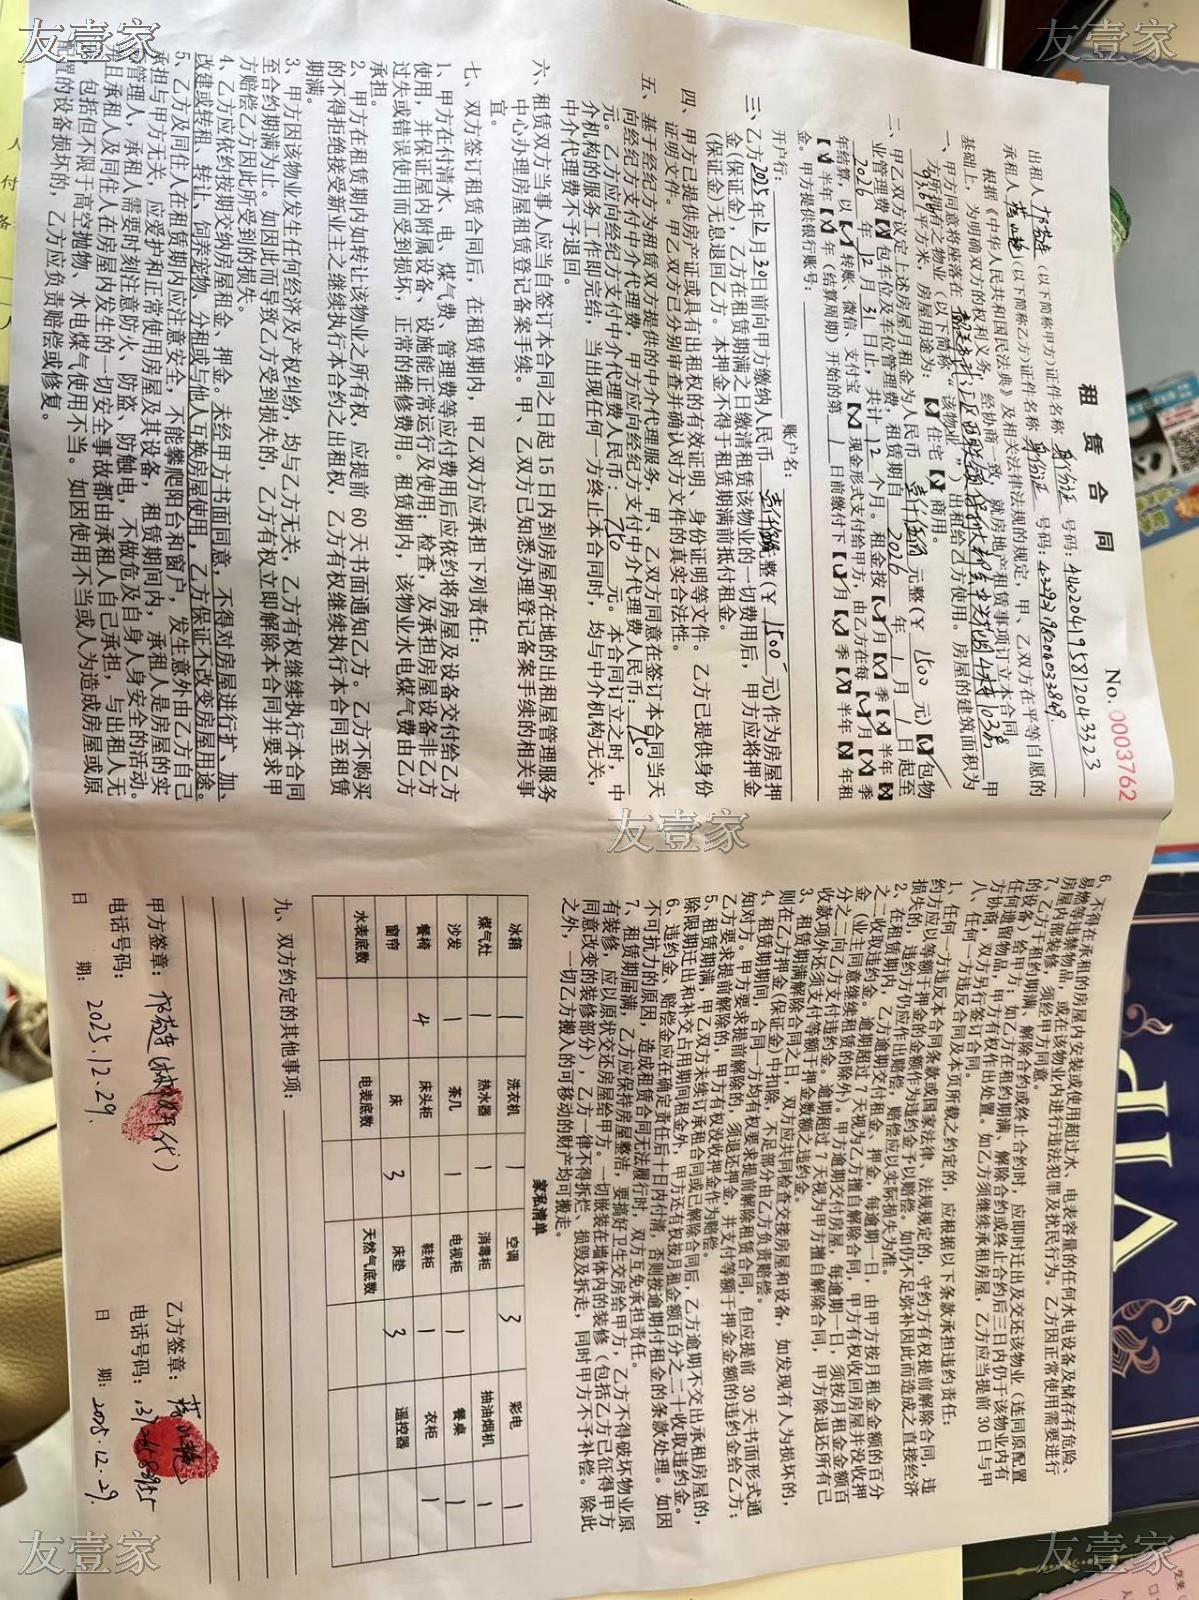 友壹家
友壹家
租 赁 合 同
No. 0003762
出租人 （以下简称甲方证件名称 身份证 号码：440204195812043323
承租人 （以下简称乙方证件名称 身份证 号码：
根据《中华人民共和国民法典》及相关法律法规的规定，甲、乙双方在平等自愿的
基础上，为明确双方的权利义务，经协商一致，就房地产租赁事项订立本合同。
一、甲方同意将座落在 甲
方所拥有之物业（以下简称“该物业”）出租给乙方使用。房屋的建筑面积为
平方米，房屋用途为：【】住宅【】商用。
二、甲乙双方议定上述房屋月租金为人民币 元整（￥ 1500 元）【】包物
业管理费【】包车位及车位管理费，租赁期自 2026 年 1 月 1 日起至
2026 年 12 月 31 日止，共计 12 个月。租金按【】月【】季【】半年【】年租
年结算，以【】转账、微信、支付宝【】现金形式支付给甲方，由乙方在每【】月【】季
【】半年【】年（结算周期）开始的第 1 日前缴付下【】月【】季【】半年【】年租
金。甲方提供银行账号：
开户行： 账户名：
三、乙方 2025年12月30日前向甲方缴纳人民币 整（￥ 1500 元）作为房屋押
金（保证金），乙方在租赁期满之日缴清租赁该物业的一切费用后，甲方应将押金
（保证金）无息退回乙方。本押金不得于租赁期满前抵付租金。
四、甲方已提供房产证或具有出租权的有效证明、身份证明等文件。乙方已提供身份
证明文件。甲乙双方已分别审查并确认对方文件的真实合法性。
五、基于经纪方为租赁双方提供的中介代理服务，甲、乙双方同意在签订本合同当天
向经纪方支付中介代理费，甲方应向经纪方支付中介代理费人民币： 750
元。乙方应向经纪方支付中介代理费人民币： 750 元。本合同订立之时，中
介机构的服务工作即完结，当出现任何一方终止本合同时，均与中介机构无关，
中介代理费不予退回。
六、租赁双方当事人应当自签订本合同之日起 15 日内到房屋所在地的出租屋管理服务
中心办理房屋租赁登记备案手续。甲、乙双方已知悉办理登记备案手续的相关事
宜。
七、双方签订租赁合同后，在租赁期内，甲乙双方应承担下列责任：
1、甲方在付清水、电、煤气费、管理费等应付费用后应依约将房屋及设备交付给乙方
使用，并保证屋内附属设备、设施能正常运行及使用；检查，及承担房屋设备非乙方
过失或错误使用而受到损坏，正常的维修费用。租赁期内，该物业水电煤气费由乙方
承担。
2、甲方在租赁期内如转让该物业之所有权，应提前 60 天书面通知乙方。乙方不购买
的不得拒绝接受新业主之继续执行本合约之出租权，乙方有权继续执行本合同至租赁
期满。
3、甲方因该物业发生任何经济及产权纠纷，均与乙方无关，乙方有权继续执行本合同
至合约期满为止。如因此而导致乙方受到损失的，乙方有权立即解除本合同并要求甲
方赔偿乙方因此所受到的损失。
4、乙方应依约按期交纳房屋租金、押金。未经甲方书面同意，不得对房屋进行扩、加、
改建或转租、转让、饲养宠物、分租或与他人互换房屋使用，乙方保证不改变房屋用途。
5、乙方及同住人在租赁期内应注意安全，不能攀爬阳台和窗户，发生意外由乙方自己
承担与甲方无关，应爱护和正常使用房屋及其设备，租赁期间内，承租人是房屋的实
管理人，承租人需要时刻注意防火、防盗、防触电，不做危及自身人身安全的活动。
且承租人及同住人在房屋内发生的一切安全事故都由承租人自己承担，与出租人无
，包括但不限于高空抛物、水电煤气使用不当。如因使用不当或人为造成房屋或原
配置的设备损坏的，乙方应负责赔偿或修复。
友壹家
6、不得在承租的房屋内安装或使用超过水、电表容量的任何水电设备及储存有危险、
易燃等违禁物品，或在该物业内进行违法犯罪及扰民行为。乙方因正常使用需要进行
房屋内部装修，须经甲方同意。
7、乙方于租约期满、解除合约或终止合约时，应即时迁出及交还该物业（连同原配置
的设备）给甲方；如乙方在租约期满、解除合约或终止合约后三日内仍于该物业内有
任何遗留物品，甲方有权作出处置。如乙方须继续承租房屋，乙方应当提前 30 日与甲
方协商，双方另行签订合同。
八、任何一方违反合同及本页所载之约定的，应根据以下条款承担违约责任：
1、任何一方违反本合同条款或国家法律、法规规定的，守约方有权提前解除合同，违
约方应以等额于押金的金额作为违约金予以赔偿。如仍不足弥补因此而造成之直接经济
损失的，违约方仍应作出赔偿，赔偿应以实际损失为准。
2、在租赁期内，乙方逾期交付租金、押金，每逾期一日，由甲方按月租金金额的百分
之二收取违约金。逾期超过 7 天视为乙方擅自解除合同，甲方有权收回房屋并没收押
金（业主同意继续租赁的除外）。甲方逾期交付房屋，每逾期一日，须按月租金金额百
分之二向乙方支付违约金。逾期超过 7 天视为甲方擅自解除合同，甲方除退还所有已
收款项外还须支付等额于押金数额之违约金。
3、租赁期满解除合同之日，双方应共同检查交接房屋和设备，如发现有人为损坏的，
则在乙方押金（保证金）中扣除，不足部分由乙方负责赔偿。
4、租赁期期间，合同一方均有权要求提前解除租赁合同，但应提前 30 天书面形式通
知对方。甲方要求提前解除的，须退还押金，并支付等额于押金金额的违约金给乙方；
乙方要求提前解除的，甲方有权没收押金作为赔偿。
5、租赁期满，甲乙双方未续订承租合同或已解除合同后，乙方逾期不交出承租房屋的，
除限期迁出和补交占用期间租金外，甲方还有权按月租金额百分之二十收取违约金。
6、违约金、赔偿金应在确定责任后十日内付清，否则按逾期付租金的条款处理。如因
不可抗力的原因，造成租赁合同无法履行时，双方互免承担责任。
7、租赁期届满，乙方应保持房屋整洁，要搞好卫生交房给甲方，乙方不得破坏物业原
有装修，应以原状交还房屋给甲方。一切嵌装在墙体内的装修（包括乙方已征得甲方
同意改变的装修部分），乙方一律不得拆烂、损毁及拆走，同时甲方不予补偿。除此
之外，一切乙方搬入的可移动的财产均可搬走。
家私清单
冰箱 1 洗衣机 1 空调 3 彩电 1
煤气灶 1 热水器 1 消毒柜 抽油烟机 1
沙发 1 茶几 1 电视柜 1 餐桌 1
餐椅 4 床头柜 鞋柜 1 衣柜 1
窗帘 床 3 床垫 3 遥控器
水表底数 电表底数 天然气底数
九、双方约定的其他事项：
甲方签章： 乙方签章：
电话号码： 电话号码：
日 期： 2025.12.29. 日 期： 2025.12.29.
VIP
友壹家
友壹家